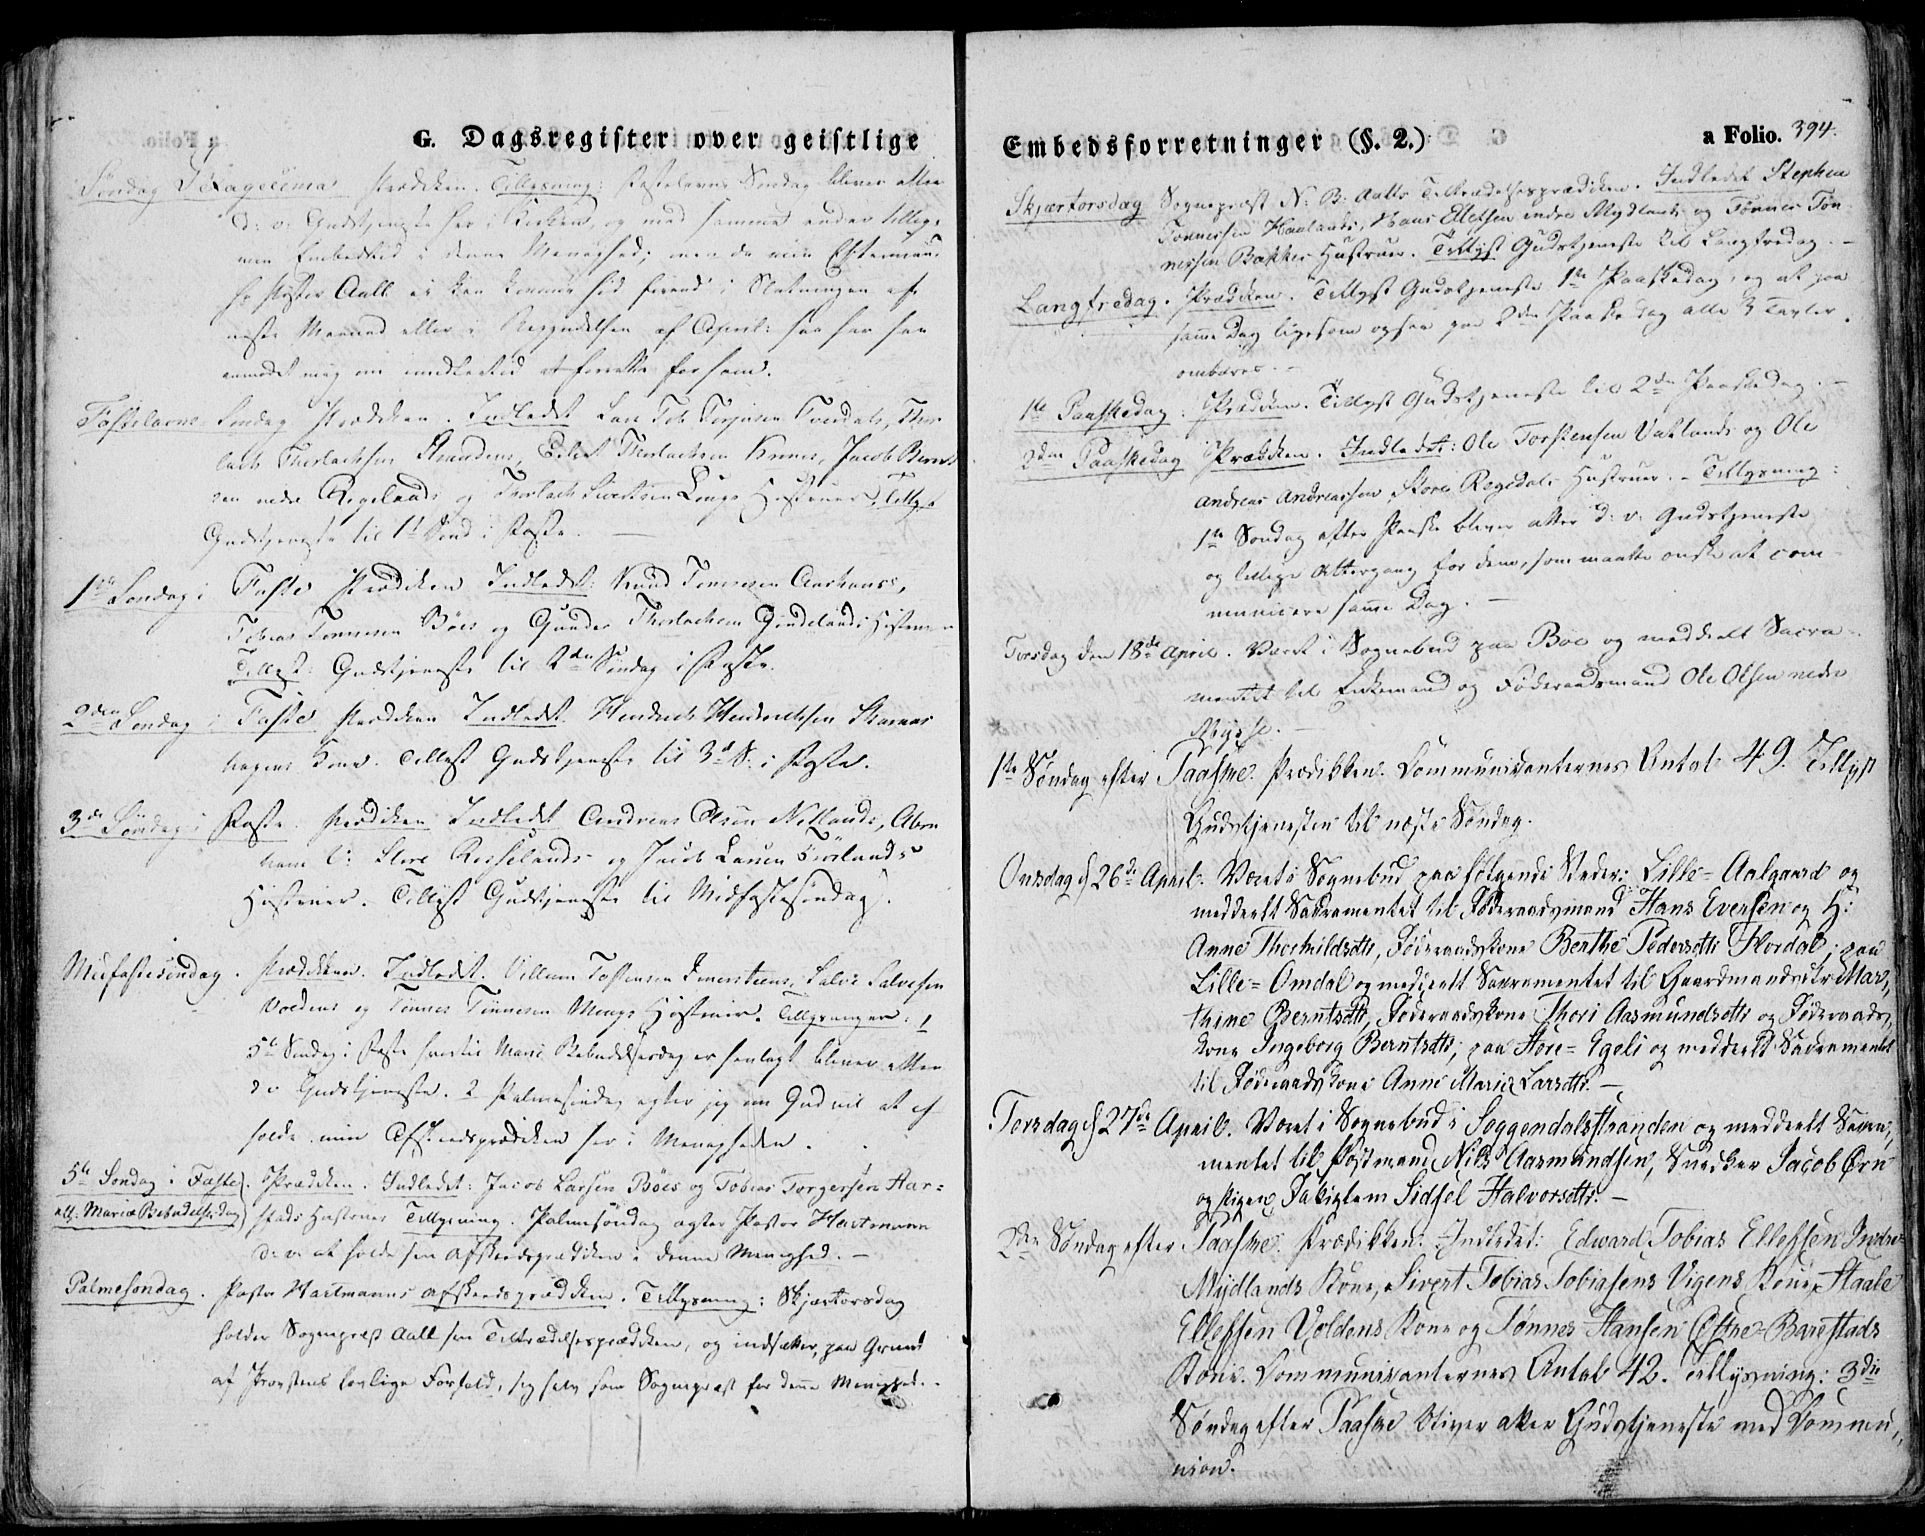 G. Dagsregister over geistlige
Søndag Sexagesima Prædiken. Tillysning: Fastelavns Søndag bliver atter
d: v: Gudstjeneste her i Kirken, og med samme ender tillige
min Embedstid i denne Menighed; men da min Eftermand
Hr Pastor Aall ei kan komme hid førend i Slutningen af
næste Maaned eller i Begyndelsen af April: saa har han
anmodet mig om imidlertid at forrette for ham.
Fastelavns Søndag Prædiken. Indledet Lars Tob Torjusen Tvedals, Thor
lach Thorlachsen Strandens, Eilert Thorlachsen Krunes, Jacob Bernt
sen nedre Regelands og Thorlach Sivertsen Longs Hustruer. Tillyst
Gudstjeneste til 1st Sønd i Faste.
1ste Søndag i Faste Prædiken Indledet: Knud Tønnesen Aarhuuss,
Tobias Tønnesen Böes og Gunder Thorlachsen Gindelands Hustruer
Tillyst: Gudstjeneste til 2den Søndag i Faste.
2den Søndag i Faste Prædiken Indledet. Hendrich Hendrichsen Skaraas
hagens Kone. Tillyst Gudstjeneste til 3d S. i Faste.
3de Søndag i Faste. Prædiken Indledet Andreas Olsen Netlands, Abra
ham U: Store Rosselands og Jacob Larsen Fiørlands
Hustruer. Tillyst Gudstjeneste til Midfastesøndag.
Midfastesøndag. Prædiken. Indledet. Villum Tostensen Immersteens, Salve Salvesen
Voldens og Tønnes Tønnesen Mongs Hustruer. Tillysninger: 1
5te Søndag i Faste hvortil Mariæ Bebudelsesdag er henlagt bliver atter
d v Gudstjeneste. 2 Palmesøndag agter jeg om Gud vil at af
holde min Afskedsprædiken her i Menigheden.
5te Søndag i Faste. Prædiken. Indledet: Jacob Larsen Böes og Tobias Torgersen Aar=
ell. Mariæ Bebudelsesdag) stads Hustruer Tillysning. Palmesøndag agter Pastor Hartmann
d: v: at holde sin Afskedsprædiken i denne Menighed. —
Palmesøndag. Pastor Hartmanns Afskedsprædiken. Tillysning: Skjærtorsdag
holder Sognepræst Aall sin Tiltrædelsesprædiken, og indsætter, paa Grund
af Provstens lovlige Forfald, sig selv som Sognepræst for denne Menighed. -
Embedsforretninger (§. 2.)
a Folio. 394.
Skjærtorsdag Sognepræst N: B: Aalls Tiltrædelsesprædiken. Indledet Stephen
Tønnessen Haalands, Hans Ellefsen indre Mydlands og Tønnes Tøn-
nessen Bakkes Hustruer. Tillyst Gudstjeneste til Langfredag. -
Langfredag. Prædiken. Tillyst Gudstjeneste 1ste Paaskedag, og at paa
samme Dag ligesom ogsaa paa 2den Paaskedag alle 3 Tavler
ombæres. -
1ste Paaskedag: Prædiken. Tillyst Gudstjeneste til 2den Paaskedag. -
2den Paaskedag Prædiken. Indledet: Ole Torstensen Vatlands og Ole
Andreas Andreassen Store Regedals Hustruer. - Tillysning:
1ste Søndag efter Paaske bliver atter d: v: Gudstjeneste
og tillige Altergang for dem, som maatte ønske at com-
municere samme Dag. -
Torsdag den 18de April. Været i Sognebud paa Böe og meddeelt Sacra-
mentet til Enkemand og Føderaadsmand Ole Olsen nedre
Mysse. -
1ste Søndag efter Paaske. Prædikken. Communikanternes Antal 49. Tillyst
Gudstjenesten til næste Søndag.
Onsdag d 26de April. Været i Sognebud paa følgende Steder: Lille=Aalgaard og
meddeelt Sacramentet til Føderaadsmand Hans Eversen og H:
Anne Thorkildsdtt, Føderaadskone Berthe Pedersdtt Flordal; paa
Lille=Omdal og meddeelt Sacramentet til Gaardmandsekone Mar„
thine Berntsdtt, Føderaadskone Thori Aasmundsdtt og Føderaads„
kone Ingeborg Berntsdtt; paa Store=Egeli og meddeelt Sacramentet
til Føderaadskone Anne Marie Larsdtt. —
Torsdag d 27de April. Været i Sognebud i Soggendalsstranden og meddeelt Sacra„
mentet til Postmand Nils Aasmundsen, Snedker Jacob Ørn
og Pigen Fatiglem Sidsel Halvorsdtt. —
2den Søndag efter Paaske. Prædikken. Indledet: Edward Tobias Ellefsen Indre=
Mydlands Kone, Sivert Tobias Tobiasens Vigens Kone, Staale
Ellefsen Voldens Kone og Tønnes Hansen Østre=Barstads
Kone. Communikanternes Antal 42. Tillysning: 3die
Søndag efter Paaske bliver atter Gudstjeneste med Commu„
nion.